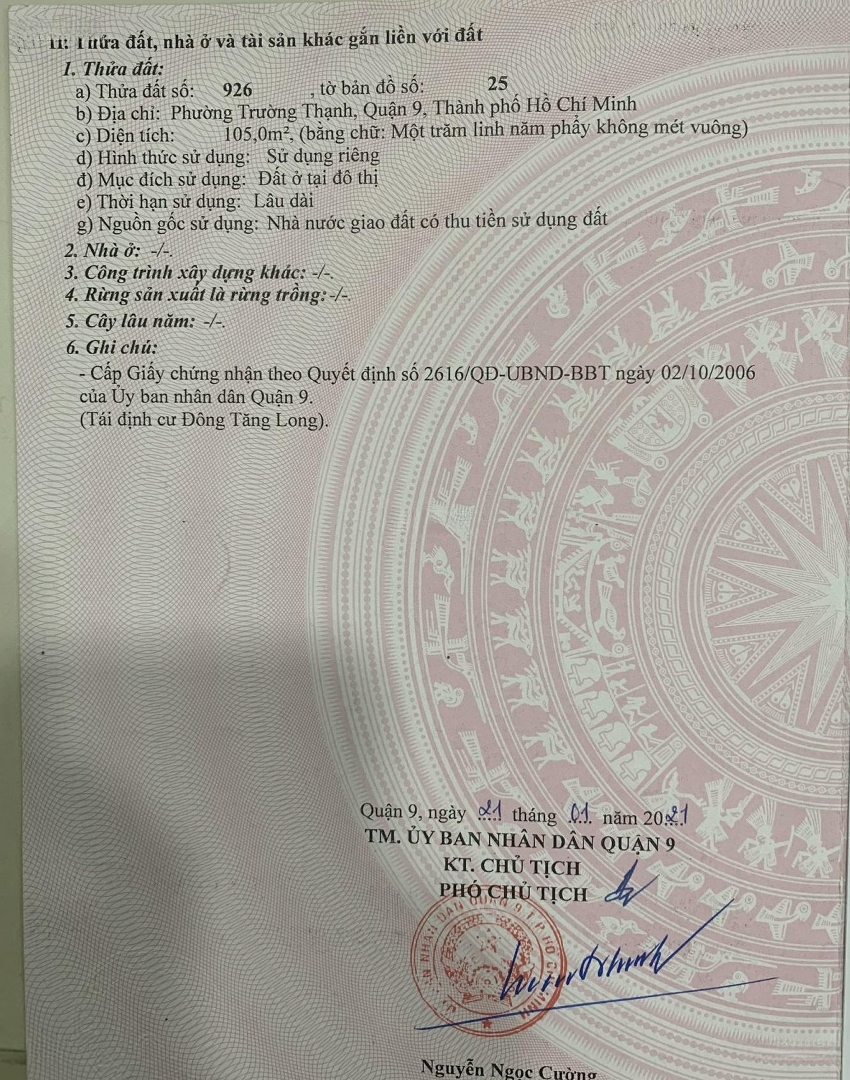 II. Thửa đất, nhà ở và tài sản khác gắn liền với đất
1. Thửa đất:
a) Thửa đất số: 926 , tờ bản đồ số: 25
b) Địa chỉ: Phường Trường Thạnh, Quận 9, Thành phố Hồ Chí Minh
c) Diện tích: 105,0m², (bằng chữ: Một trăm linh năm phẩy không mét vuông)
d) Hình thức sử dụng: Sử dụng riêng
đ) Mục đích sử dụng: Đất ở tại đô thị
e) Thời hạn sử dụng: Lâu dài
g) Nguồn gốc sử dụng: Nhà nước giao đất có thu tiền sử dụng đất
2. Nhà ở: -/-.
3. Công trình xây dựng khác: -/-.
4. Rừng sản xuất là rừng trồng: -/-.
5. Cây lâu năm: -/-.
6. Ghi chú:
- Cấp Giấy chứng nhận theo Quyết định số 2616/QĐ-UBND-BBT ngày 02/10/2006
của Ủy ban nhân dân Quận 9.
(Tái định cư Đông Tăng Long).
Quận 9, ngày 21 tháng 01 năm 2021
TM. ỦY BAN NHÂN DÂN QUẬN 9
KT. CHỦ TỊCH
PHÓ CHỦ TỊCH
Nguyễn Ngọc Cường